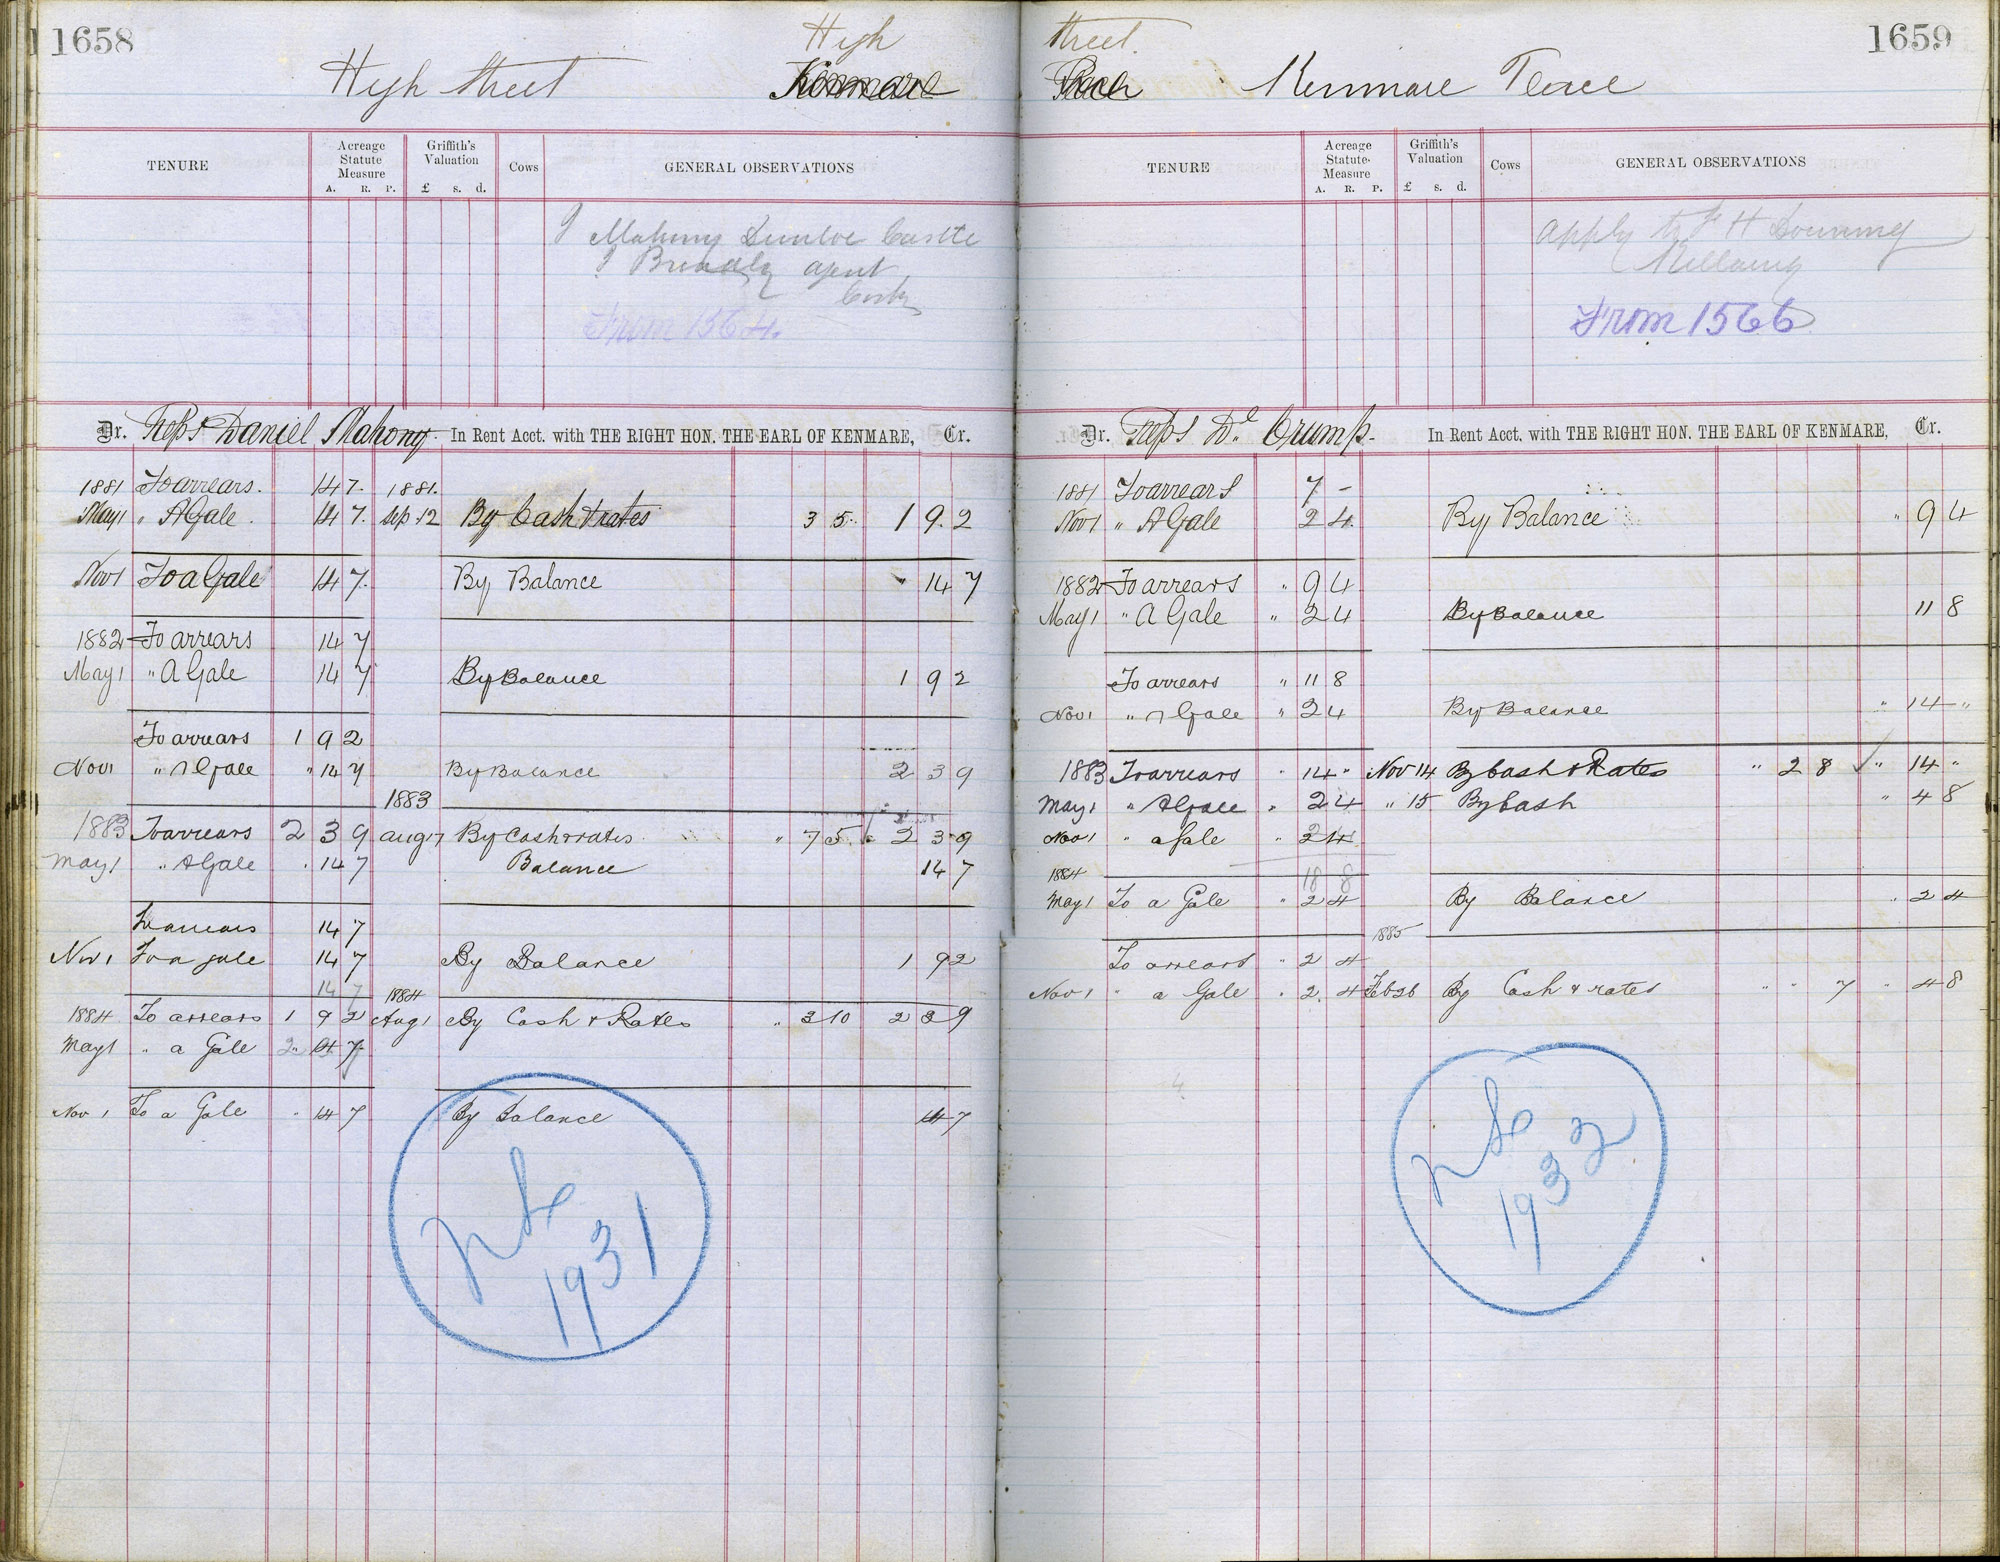 1658
High Street
High
Kenmare
TENURE
Acreage Statute Measure
A. R. P.
Griffith's Valuation
£ s. d.
Cows
GENERAL OBSERVATIONS
Mahony Dunloe Castle
agent
Cork
From 1564.
Dr. Reps Daniel Mahony. In Rent Acct. with THE RIGHT HON. THE EARL OF KENMARE, Cr.
1881 To arrears. 14 7. 1881.
May 1 " A Gale. 14 7. Sep 12 By Cash & rates 3 5 1 9 2
Nov 1 To a Gale 14 7. By Balance " 14 7
1882 To arrears 14 7
May 1 " A Gale 14 7 By Balance 1 9 2
To arrears 1 9 2
Nov 1 " A Gale " 14 7 By Balance 2 3 9
1883
1883 To arrears 2 3 9 Aug 7 By Cash & rates " 7 5 2 3 9
May 1 " A Gale " 14 7 Balance 14 7
To arrears 14 7
Nov 1 To a gale 14 7 By Balance 1 9 2
14 7 1884
1884 To arrears 1 9 2 Aug 1 By Cash & Rates " 3 10 2 3 9
May 1 " a Gale 14 7
Nov 1 To a Gale " 14 7 By Balance 14 7
1931
1659
Street.
Place
Kenmare Place
TENURE
Acreage Statute Measure
A. R. P.
Griffith's Valuation
£ s. d.
Cows
GENERAL OBSERVATIONS
Apply to F H Downing
Killarney
From 1566
Dr. Reps Dr. Crump. In Rent Acct. with THE RIGHT HON. THE EARL OF KENMARE, Cr.
1881 To arrears 7 -
Nov 1 " A Gale 2 4 By Balance " 9 4
1882 To arrears " 9 4
May 1 " A Gale " 2 4 By Balance 11 8
To arrears " 11 8
Nov 1 " A Gale " 2 4 By Balance " 14 "
1883 To arrears " 14 " Nov 14 By Cash & Rates " 2 8 " 14 "
May 1 " A Gale " 2 4 " 15 By Cash " 4 8
Nov 1 " a Gale " 2 4
1884 18 8
May 1 To a Gale " 2 4 By Balance " 2 4
1885
To arrears " 2 4
Nov 1 " a Gale " 2 4 Feb 26 By Cash & rates " " 7 " 4 8
1932